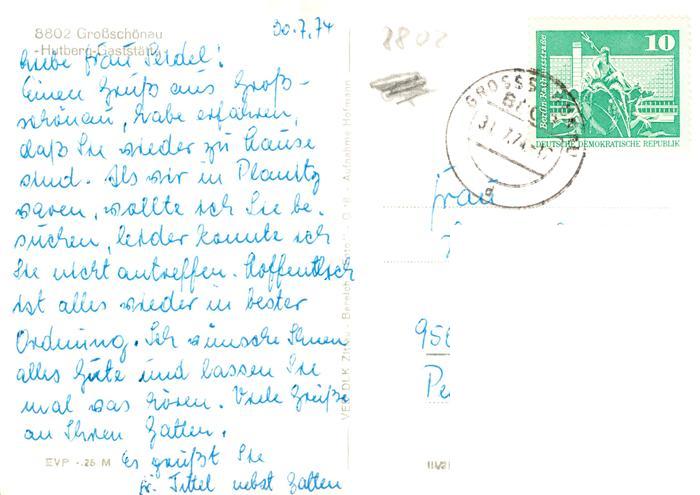 8802 Großschönau
-Hutberg-Gaststätte-
30.7.74
Liebe Frau Seidel!
Einen Gruß aus Groß-
schönau, habe erfahren,
daß Sie wieder zu Hause
sind. Als wir in Planitz
waren, wollte ich Sie be-
suchen, leider konnte ich
Sie nicht antreffen. Hoffentlich
ist alles wieder in bester
Ordnung. Ich wünsche Ihnen
alles Gute und lassen Sie
mal was hören. Viele Grüße
an Ihren Gatten.
Es grüßt Sie
Fr. Tittel nebst Gatten
EVP -.25 M
Aufnahme Hofmann
8802
Berlin-Rathausstraße
10
DEUTSCHE DEMOKRATISCHE REPUBLIK
31.7.74
Frau
956